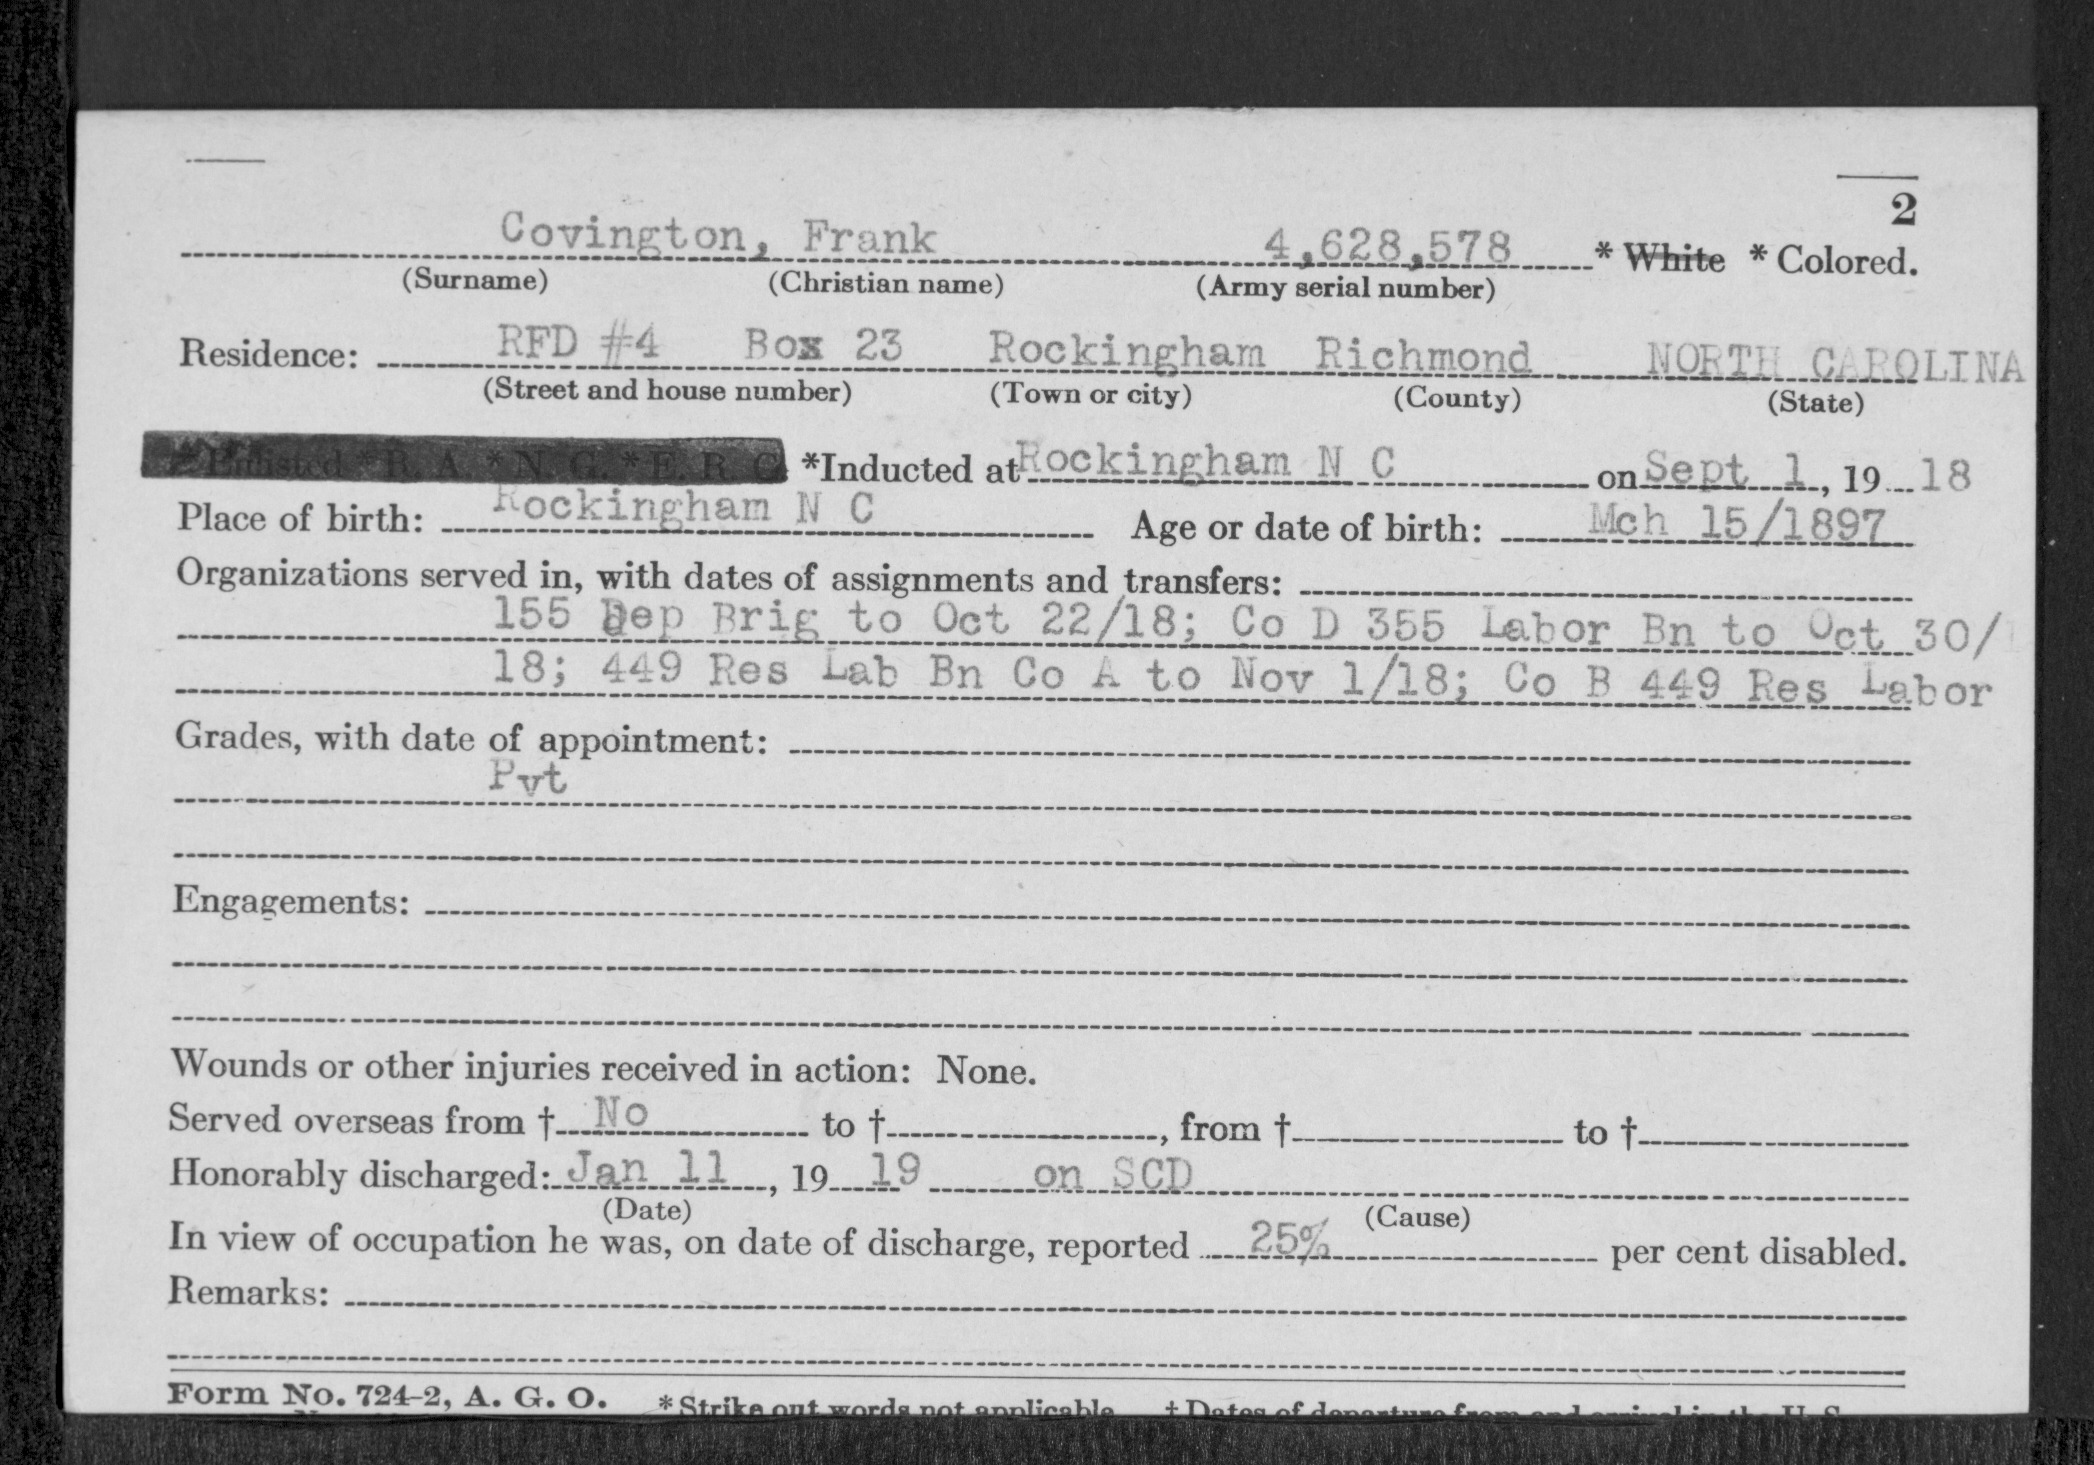 2
Covington, Frank 4,628,578 * White * Colored.
(Surname) (Christian name) (Army serial number)
Residence: RFD #4 Box 23 Rockingham Richmond NORTH CAROLINA
(Street and house number) (Town or city) (County) (State)
*Enlisted *R. A. *N. G. *E. R. C. *Inducted at Rockingham N C on Sept 1, 19 18
Place of birth: Rockingham N C Age or date of birth: Mch 15/1897
Organizations served in, with dates of assignments and transfers:
155 Dep Brig to Oct 22/18; Co D 355 Labor Bn to Oct 30/
18; 449 Res Lab Bn Co A to Nov 1/18; Co B 449 Res Labor
Grades, with date of appointment:
Pvt
Engagements:
Wounds or other injuries received in action: None.
Served overseas from † No to †, from † to †
Honorably discharged: Jan 11, 19 19 on SCD
(Date) (Cause)
In view of occupation he was, on date of discharge, reported 25% per cent disabled.
Remarks:
Form No. 724-2, A. G. O. *Strike out words not applicable † Dates of departure from and arrival in the U. S.